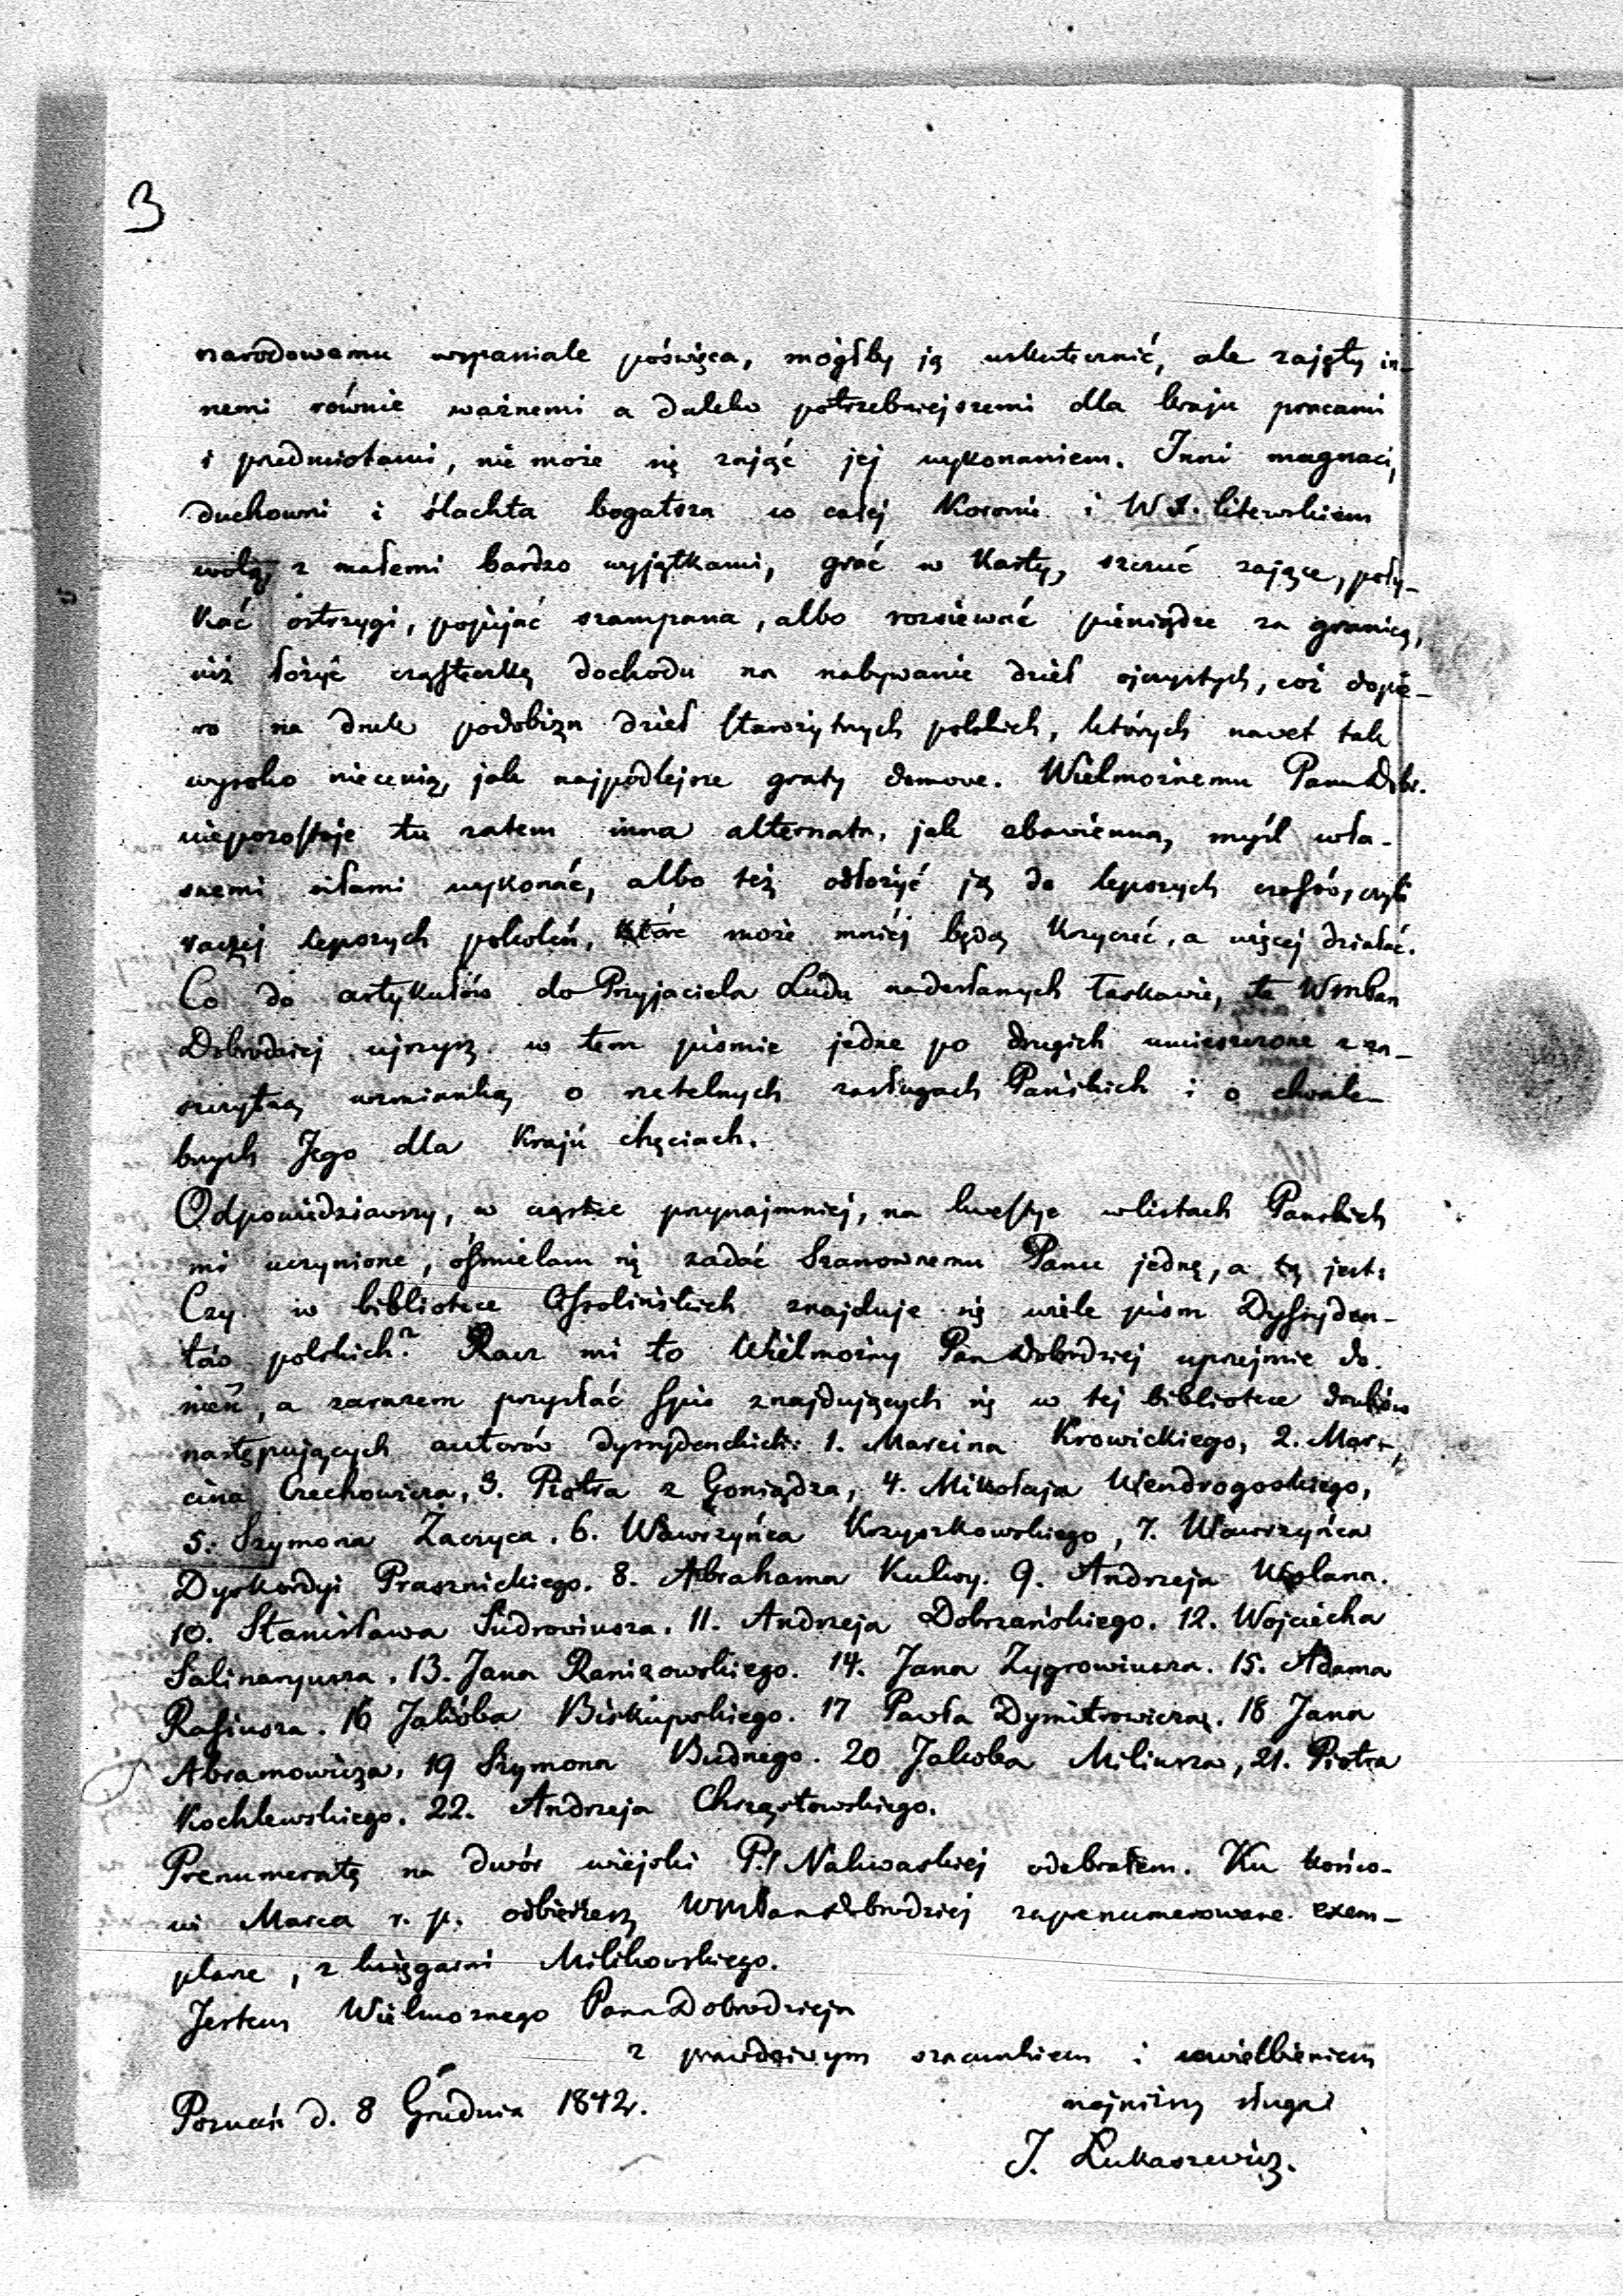 3
narodowemu wspaniale poświęca, mógłby ją uskutecznić, ale zajęty in-
nemi równie ważnemi a daleko potrzebniejszemi dla kraju pracami
i przedmiotami, nie może się zająć jej wykonaniem. Inni magnaci,
duchowni i ślachta bogatsza w całej Koronie i W X. litewskiem
wolą, z małemi bardzo wyjątkami, grać w karty, szczuć zające, poły-
kać ostrzygi, popijać szampana, albo rozsiewać pieniądze za granicą,
niż łożyć cząsteczkę dochodu na nabywanie dzieł ojczystych, coż dopie-
ro na druk podobizn dzieł starożytnych polskich, których nawet tak
wysoko niecenią, jak najpodlejsze graty domowe. Wielmożnemu Panu Dobr.
niepozostaje tu zatem inna alternata, jak zbawienną myśl wła-
snemi siłami wykonać, albo też odłożyć ją do lepszych czasów, czyli
raczej lepszych pokoleń, które może mniéj będą krzyczeć, a więcej działać.
Co do artykułów do Przyjaciela Ludu nadesłanych łaskawie, te WmPan
Dobrodziej ujrzysz w tem piśmie jedne po drugich umieszczone z za-
szczytną wzmianką o rzetelnych zasługach Pańskich i o chwale-
bnych Jego dla kraju chęciach.
Odpowiedziawszy, w cząstce przynajmniej, na kwestye w listach Pańskich
mi uczynione, ośmielam się zadać Szanownemu Panu jednę, a tą jest:
Czy w bibliotece Ossolińskich znajduje się wiele pism Dyssyden-
tów polskich? Racz mi to Wielmożny Pan Dobrodziej uprzejmie do-
nieść, a zarazem przysłać spis znajdujących się w tej bibliotece druków
następujących autorów dyssydenckich: 1. Marcina Krowickiego, 2. Mar-
cina Czechowicza, 3. Piotra z Goniądza, 4. Mikołaja Wendrogoskiego,
5. Szymona Zacyca. 6. Wawrzyńca Krzyszkowskiego, 7. Wawrzyńca
Dyskordyi Prasznickiego. 8. Abrahama Kulwy. 9. Andrzeja Wolana.
10. Stanisława Sudrowiusza. 11. Andrzeja Dobrzańskiego. 12. Wojciecha
Salinaryusza. 13. Jana Ranizowskiego. 14. Jana Zygrowiusza. 15. Adama
Rasiusza. 16 Jakóba Biskupskiego. 17 Pawła Dymitrowicza. 18 Jana
Abramowicza. 19 Szymona Budnego. 20 Jakóba Miliusza, 21. Piotra
Kochlewskiego. 22. Andrzeja Chrząstowskiego.
Prenumeratę na dwór wiejski P. Nakwaskiej odebrałem. Ku końco-
wi Marca r. p. odbierzesz WmPan Dobrodziej zaprenumerowane exem-
plarze, z księgarni Milikowskiego.
Jestem Wielmożnego Pana Dobrodzieja
z prawdziwym szacunkiem i uwielbieniem
najniższy sługa
Poznań d. 8 Grudnia 1842r.
J. Łukaszewicz.